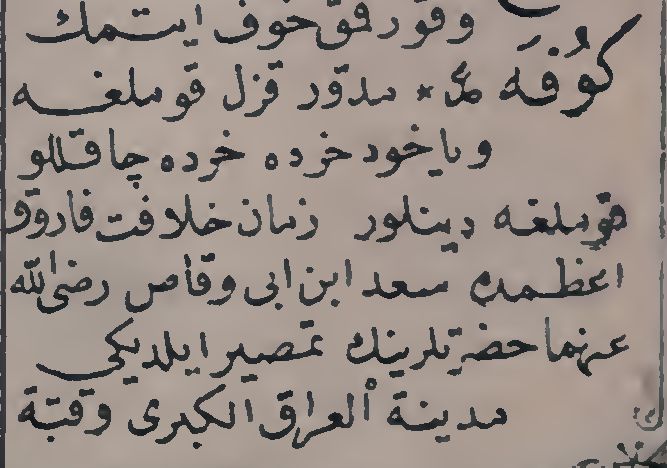 وقورقمق خوف ایتمك
كُوفَه ع * مدوّر قزل قوملغه
ویاخود خرده خرده چاقللو
قوملغه دینلور زمان خلافت فاروق
اعظمده سعد ابن ابی وقاص رضی الله
عنهما حضرتلرینك تمصیر ایلدیكی
مدینة العراق الكبری وقبّة